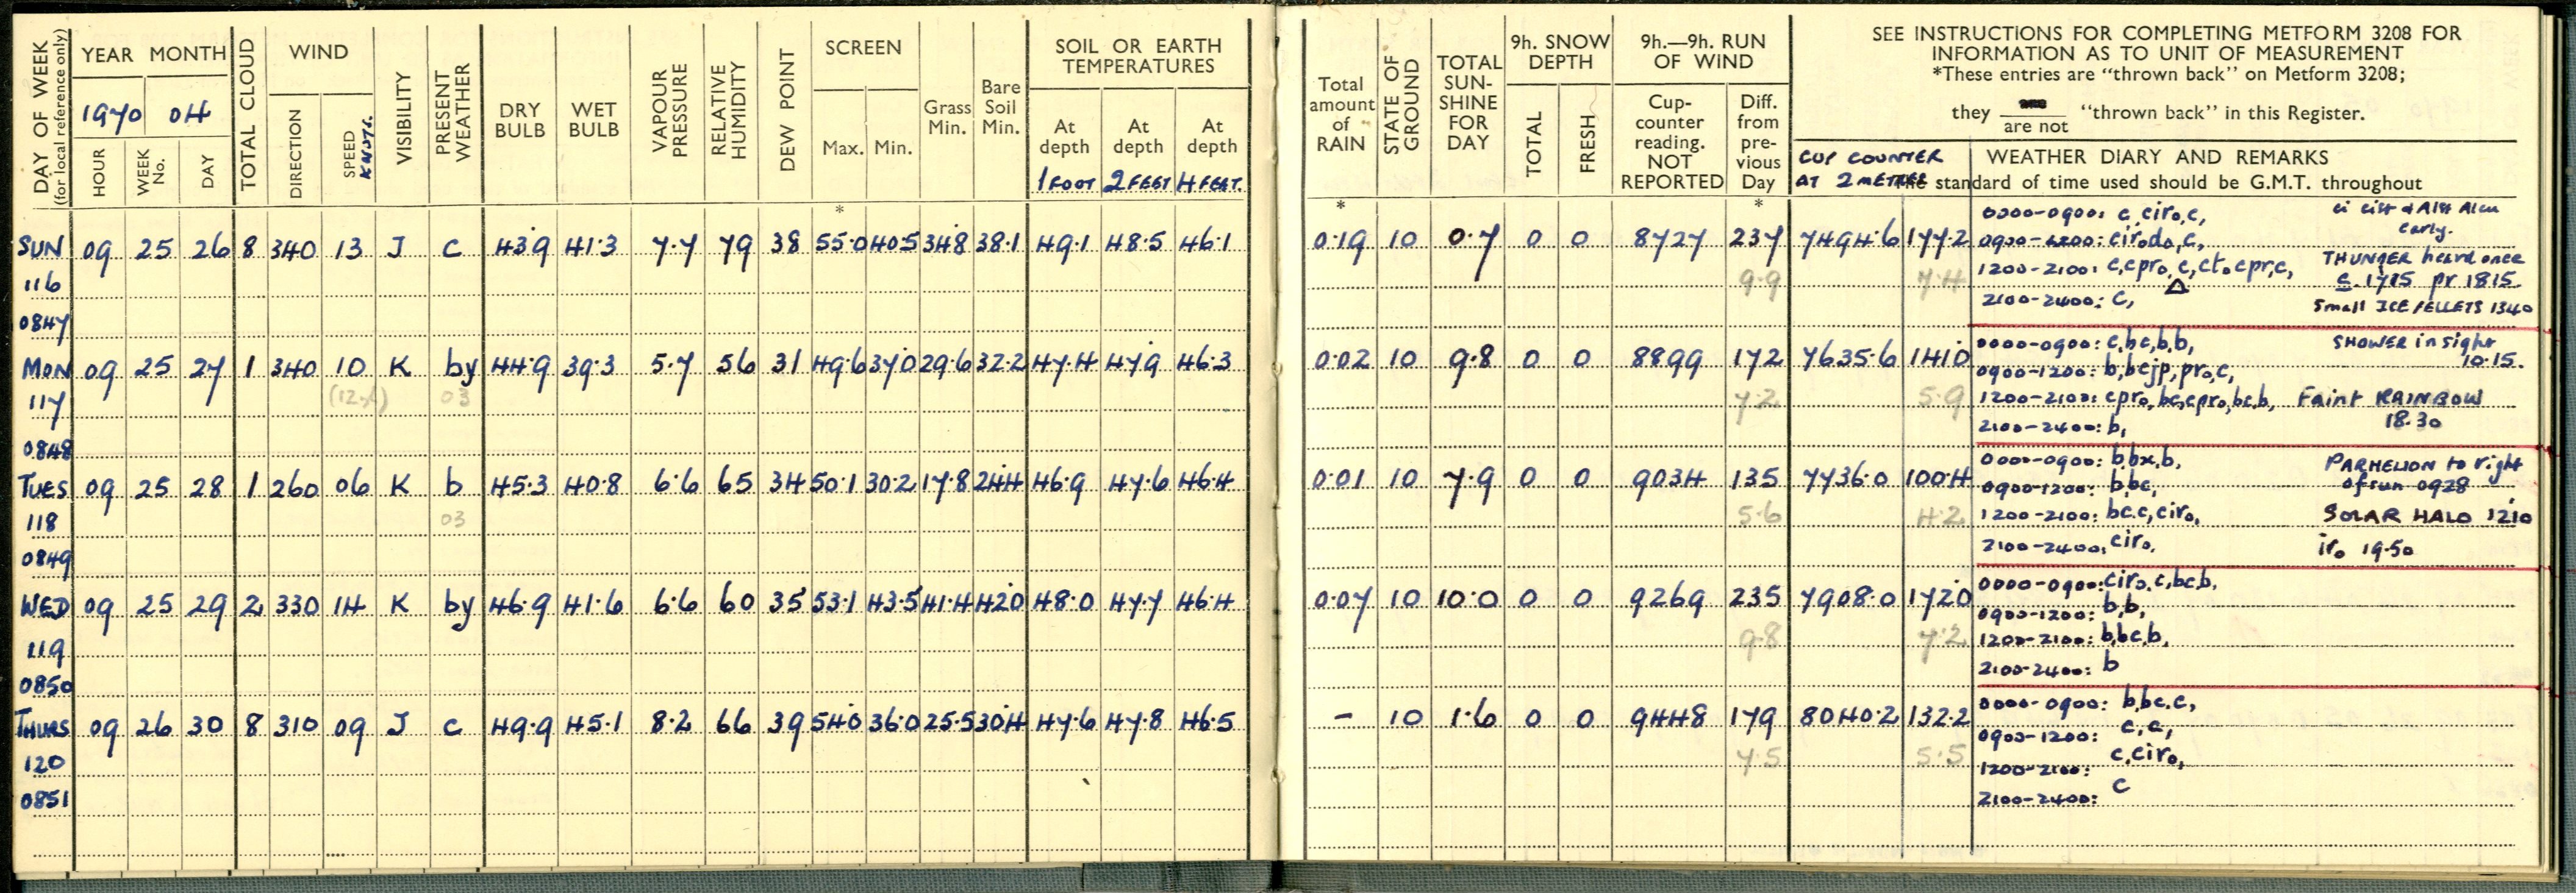 DAY OF WEEK
(for local reference only)
YEAR MONTH
1970 04
HOUR WEEK No. DAY
TOTAL CLOUD
WIND
DIRECTION SPEED KNOTS.
VISIBILITY
PRESENT WEATHER
DRY BULB
WET BULB
VAPOUR PRESSURE
RELATIVE HUMIDITY
DEW POINT
SCREEN
Max. Min.
*
Grass Min.
Bare Soil Min.
SOIL OR EARTH TEMPERATURES
At depth At depth At depth
1 FOOT 2 FEET 4 FEET.
SUN 09 25 26 8 340 13 J c 43.9 41.3 7.7 79 38 55.0 40.5 34.8 38.1 49.1 48.5 46.1
116
0847
MON 09 25 27 1 340 10 K by 44.9 39.3 5.7 56 31 49.6 37.0 29.6 32.2 47.4 47.9 46.3
117 03
0848
TUES 09 25 28 1 260 06 K b 45.3 40.8 6.6 65 34 50.1 30.2 17.8 24.4 46.9 47.6 46.4
118 03
0849
WED 09 25 29 2 330 14 K by 46.9 41.6 6.6 60 35 53.1 43.5 41.4 42.0 48.0 47.7 46.4
119
0850
THURS 09 26 30 8 310 09 J c 49.9 45.1 8.2 66 39 54.0 36.0 25.5 30.4 47.6 47.8 46.5
120
0851
Total amount of RAIN
*
STATE OF GROUND
TOTAL SUN-SHINE FOR DAY
9h. SNOW DEPTH
TOTAL FRESH
9h.—9h. RUN OF WIND
Cup-counter reading. NOT REPORTED
Diff. from pre-vious Day
*
SEE INSTRUCTIONS FOR COMPLETING METFORM 3208 FOR
INFORMATION AS TO UNIT OF MEASUREMENT
*These entries are "thrown back" on Metform 3208;
they are / are not "thrown back" in this Register.
CUP COUNTER
AT 2 METRES
WEATHER DIARY AND REMARKS
The standard of time used should be G.M.T. throughout
0.19 10 0.7 0 0 8727 237 7494.6 177.2
9.9 7.4
0000-0900: c, ciro, c,
early.
0900-1200: cirodo, c,
1200-2100: c, cpro, c, cto cpr, c, THUNDER heard once
△ c. 1715 pr 1815.
2100-2400: c, Small ICE PELLETS 1340
0.02 10 9.8 0 0 8899 172 7635.6 141.0
7.2 5.9
0000-0900: c, bc, b, b, SHOWER in sight
10.15.
0900-1200: b, bcjp, pro, c,
1200-2100: cpro, bc, cpro, bc, b, Faint RAINBOW
18.30
2100-2400: b,
0.01 10 7.9 0 0 9034 135 7736.0 100.4
5.6 4.2
0000-0900: b, bx, b, PARHELION to right
of sun 0928
0900-1200: b, bc,
1200-2100: bc, c, ciro, SOLAR HALO 1210
2100-2400, ciro, iro 19.50
0.07 10 10.0 0 0 9269 235 7908.0 172.0
9.8 7.2
0000-0900: ciro, c, bc, b,
0900-1200: b, b,
1200-2100: b, bc, b,
2100-2400: b
- 10 1.6 0 0 9448 179 8040.2 132.2
7.5 5.5
0000-0900: b, bc, c,
0900-1200: c, c,
1200-2100: c, ciro,
2100-2400: c